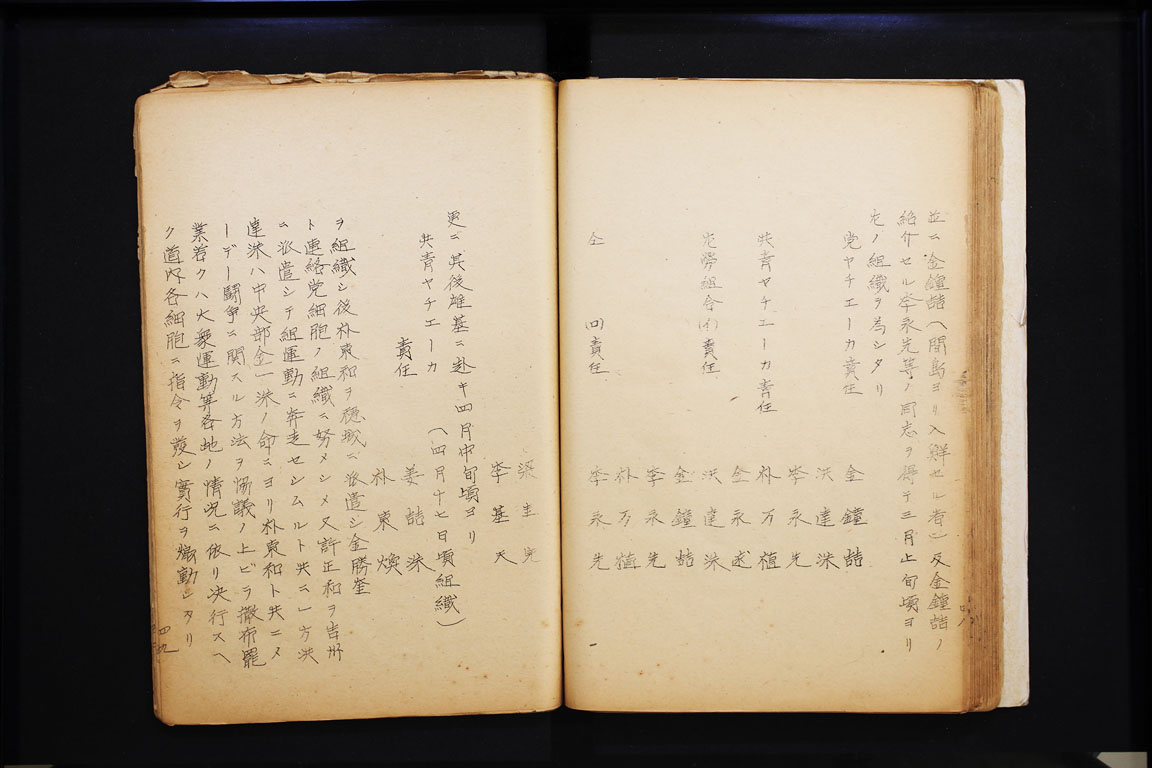 並ニ金鐘喆(間島ヨリ入鮮セル者)及金鐘喆ノ
紹介セル李永先等ノ同志ヲ得テ三月上旬頃ヨリ
左ノ組織ヲ為シタリ
党ヤチエーカ責任
金鐘喆
洪達洙
李永先
共青ヤチエーカ責任
朴万植
金永
洪達洙
左労組合(イ)責任
金鐘喆
李永先
朴万植
仝 (ロ)責任
李永先
梁圭
李基天
更ニ其後雄基ニ赴キ四月中旬頃ヨリ
(四月十七日頃組織)
共青ヤチエーカ
責任
姜喆洙
朴東煥
ヲ組織シ後朴東和ヲ穏城ニ派遣シ金勝奎
ト連絡党細胞ノ組織ニ努メシメ又許正和ヲ吉州
ニ派遣シテ組運動ニ奔走セシムルト共ニ一方洪
達洙ハ中央部金一洙ノ命ニヨリ朴東和ト共ニメ
ーデー闘争ニ関スル方法ヲ協議ノ上ビラ撒布罷
業若クハ大衆運動等各地ノ情況ニ依リ決行スヘ
ク道内各細胞ニ指令ヲ發シ實行ヲ煽動シタリ
四九